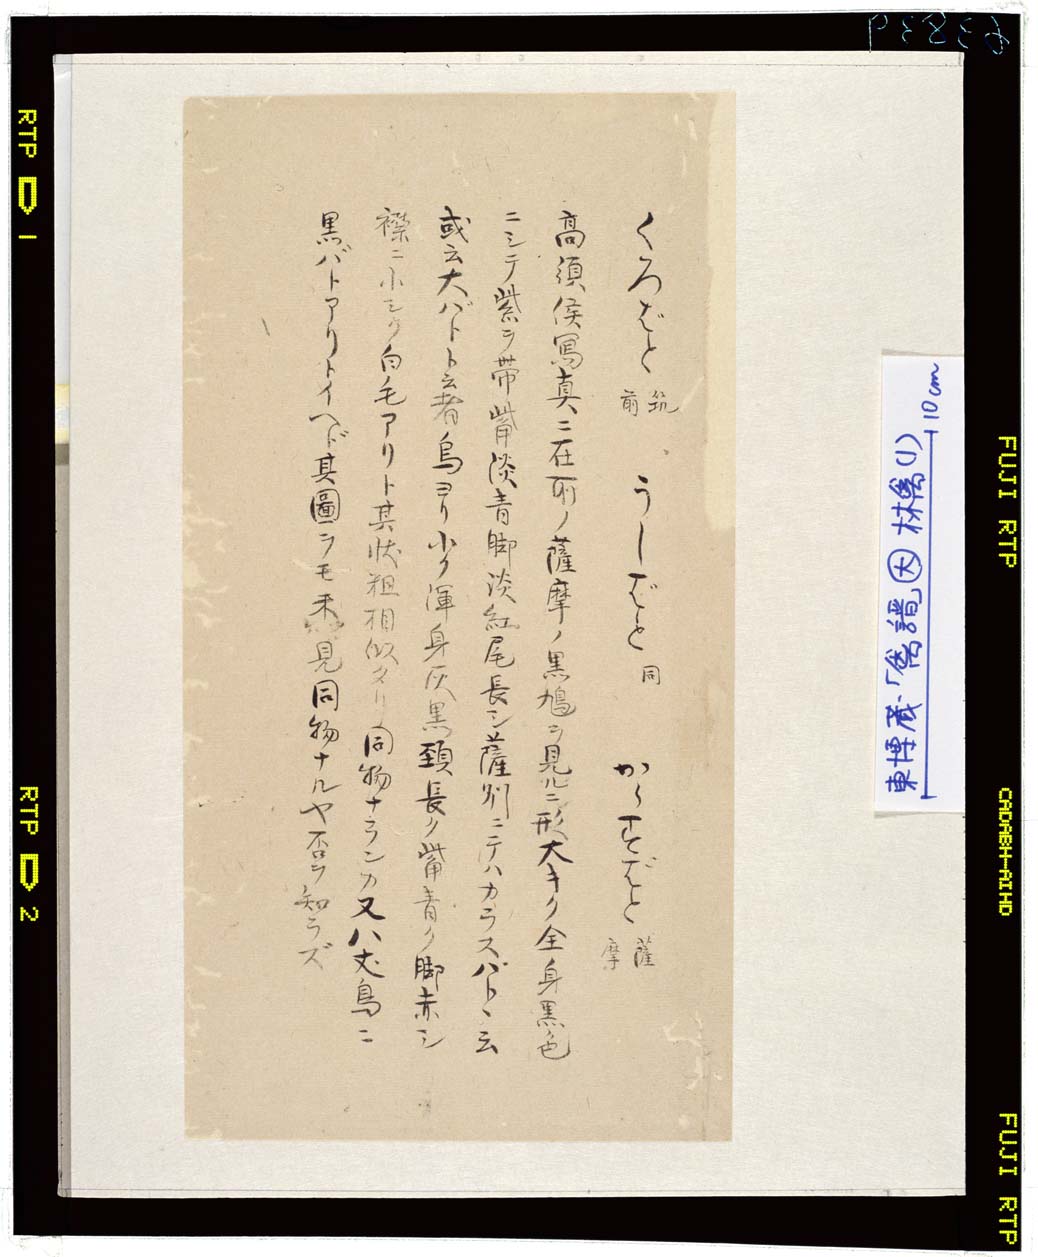 くろばと 筑前 うしばと 同 からすばと 薩摩
高須侯写真ニ在所ノ薩摩ノ黒鳩ヲ見ルニ形大キク全身黒色
ニシテ紫ヲ帯觜淡青脚淡紅尾長シ薩州ニテハカラスバトヽ云
或云大バトト云者烏ヨリ小ク渾身灰黒頚長ク觜青ク脚赤シ
襟ニ小シク白毛アリト其状粗相似タリ同物ナランカ又八丈島ニ
黒バトアリトイヘド其圖ヲモ未見同物ナルヤ否ヲ知ラズ
東博蔵・「禽譜」㊅ 林禽(1)
10cm
RTP 1
RTP 2
FUJI RTP
FUJI RTP